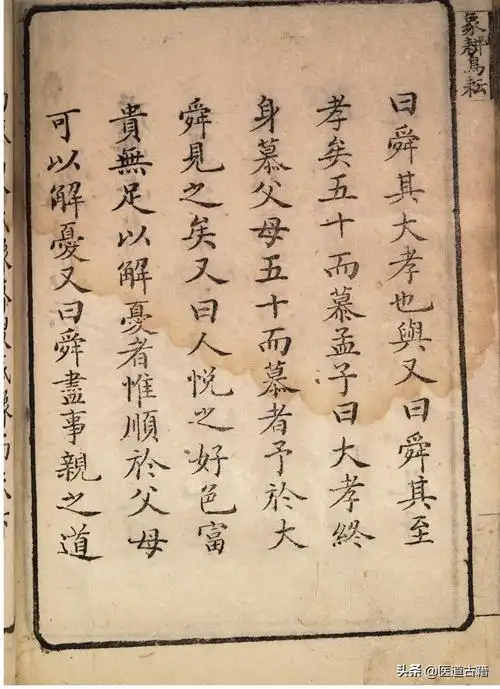 象耕鳥耘
曰舜其大孝也與又曰舜其至
孝矣五十而慕孟子曰大孝終
身慕父母五十而慕者予於大
舜見之矣又曰人悅之好色富
貴無足以解憂者惟順於父母
可以解憂又曰舜盡事親之道
头条 @医道古籍